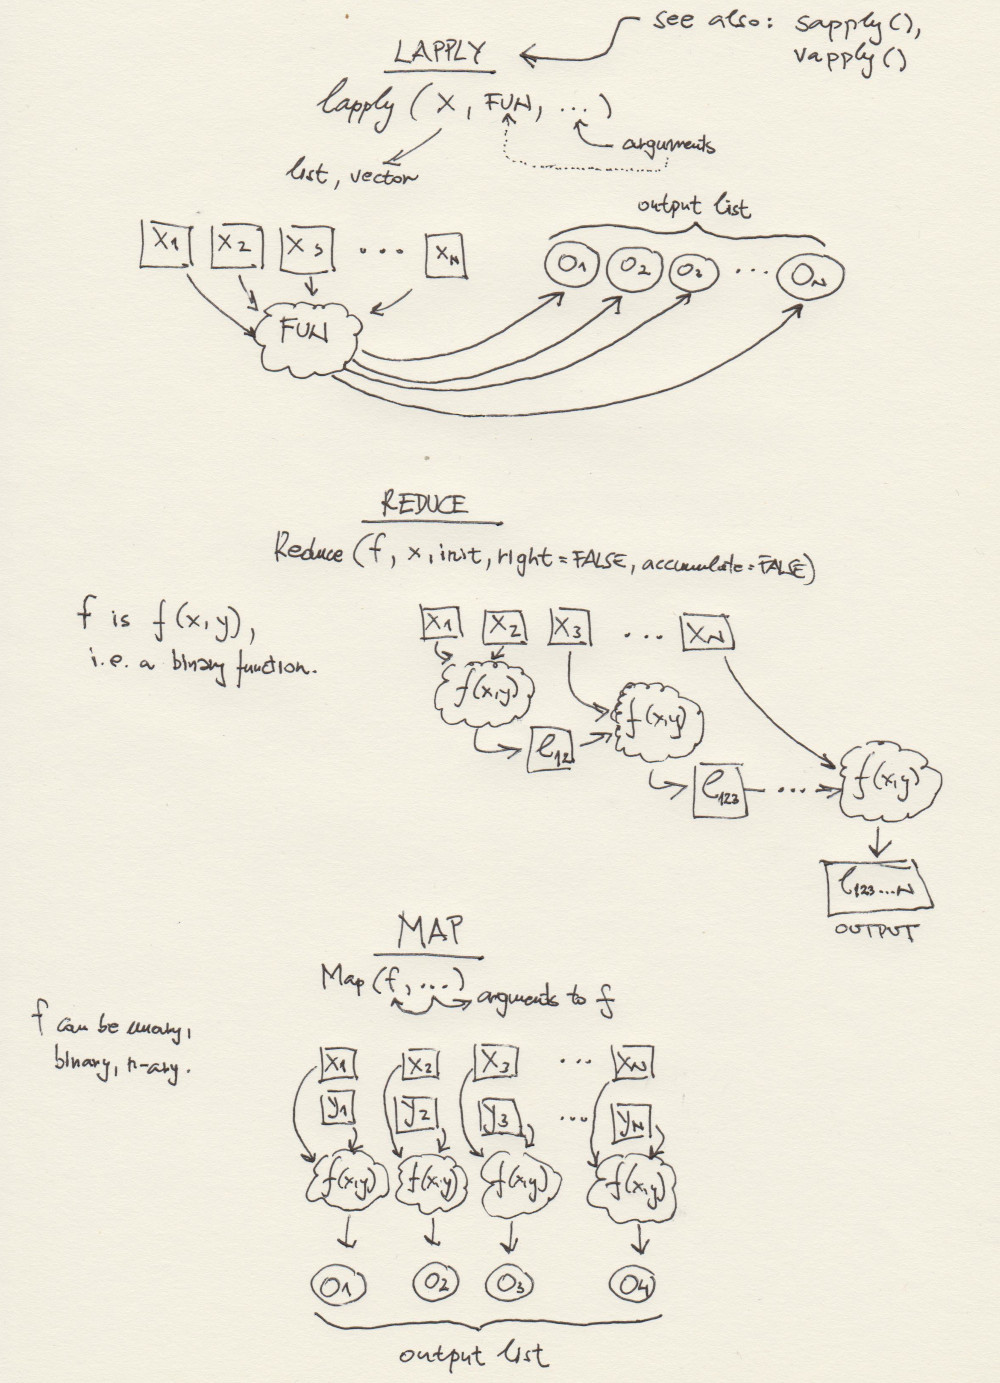 see also: sapply(),
vapply()
LAPPLY
lapply (X, FUN, ...)
arguments
list, vector
output list
X1 X2 X3 ... XN
O1 O2 O3 ... ON
FUN
REDUCE
Reduce (f, x, init, right=FALSE, accumulate=FALSE)
f is f(x,y),
i.e. a binary function.
X1 X2 X3 ... XN
f(x,y)
f(x,y)
l12
f(x,y)
l123 ...
l123...N
OUTPUT
MAP
Map (f, ...)
arguments to f
f can be unary,
binary, n-ary.
X1 X2 X3 ... XN
y1 y2 y3 ... yN
f(x,y) f(x,y) f(x,y) f(x,y)
O1 O2 O3 O4
output list